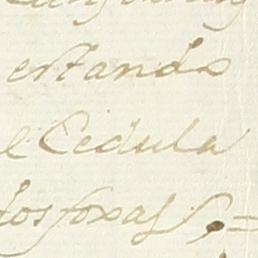 ertando
e Cedula
dos foxas